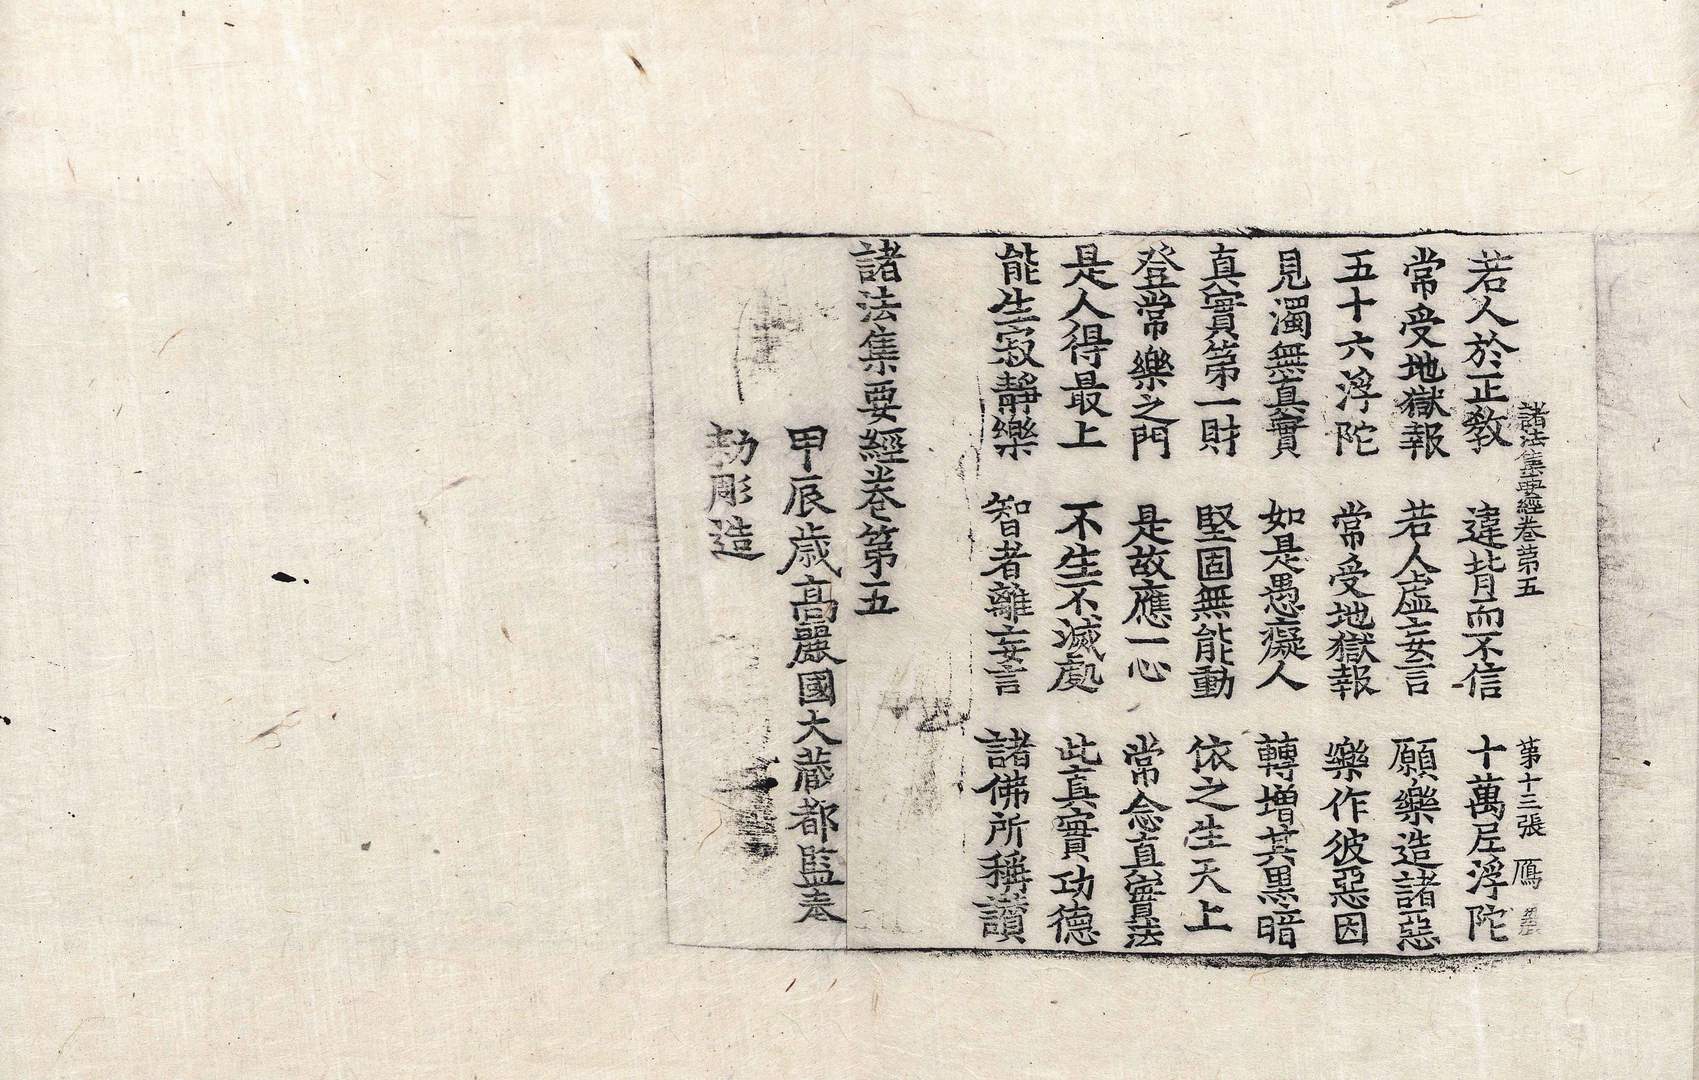 諸法集要經卷第五 第十三張 鴈
若人於正教 違背而不信 十萬尼浮陀
常受地獄報 若人虛妄言 願樂造諸惡
五十六浮陀 常受地獄報 樂作彼惡因
見濁無真實 如是愚癡人 轉增其黑暗
真實第一財 堅固無能動 依之生天上
登常樂之門 是故應一心 常念真實法
是人得最上 不生不滅處 此真實功德
能生寂靜樂 智者離妄言 諸佛所稱讚
諸法集要經卷第五
甲辰歲高麗國大藏都監奉
勅彫造